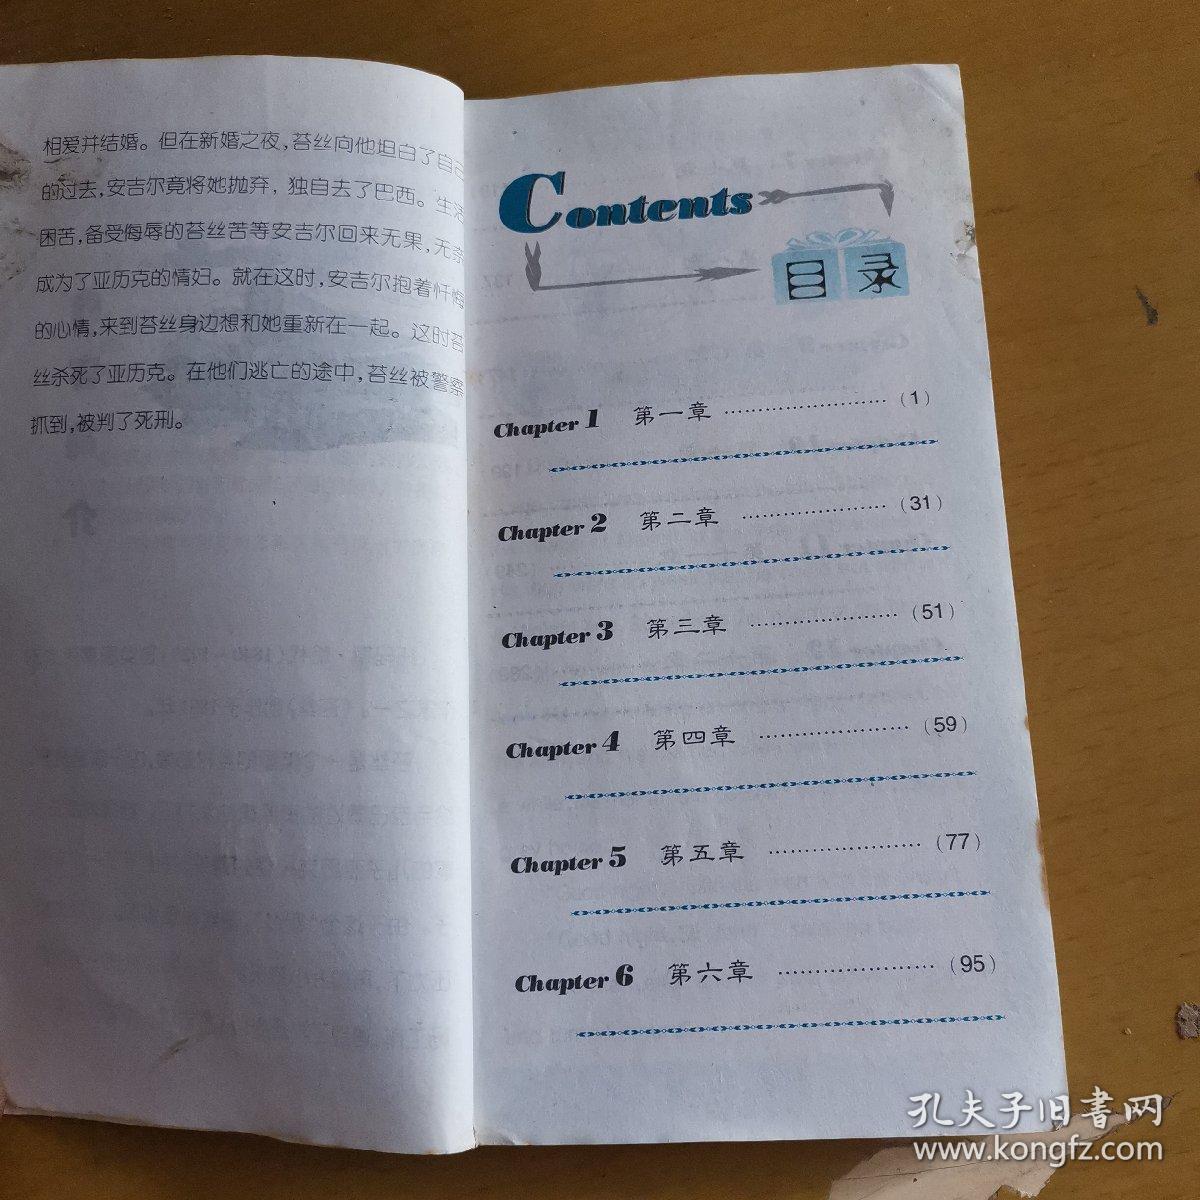 相爱并结婚。但在新婚之夜,苔丝向他坦白了自己
的过去,安吉尔竟将她抛弃,独自去了巴西。生活
困苦,备受侮辱的苔丝苦等安吉尔回来无果,无奈
成为了亚历克的情妇。就在这时,安吉尔抱着忏悔
的心情,来到苔丝身边想和她重新在一起。这时苔
丝杀死了亚历克。在他们逃亡的途中,苔丝被警察
抓到,被判了死刑。
Contents
目录
Chapter 1 第一章 ························ (1)
Chapter 2 第二章 ····················· (31)
Chapter 3 第三章 ······················ (51)
Chapter 4 第四章 ······················ (59)
Chapter 5 第五章 ······················ (77)
Chapter 6 第六章 ······················· (95)
孔夫子旧书网
www.kongfz.com